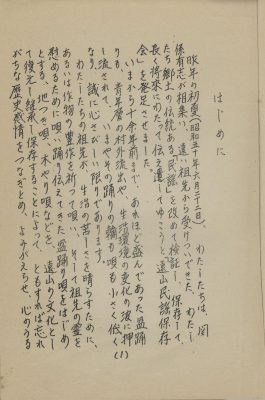 はじめに
昨年の初夏(昭和五十年六月二十二日)、わたしたちは、関
係有志が相集い、遠い祖先から受けついできた、わたし
たち郷土の伝統ある「民謡」を改めて検討し、保存して、
長く将来にわたって伝え遺してゆこうと「遠山民謡保存
会」を発足させました。
いまから十余年前まで、あれほど盛んであった盆踊
りも、青年層の村外流出や、生活環境の変化の波に押
し流されて、いまやその踊りの輪も唄も小さく低く
なり、誠に心さびしい限りであります。
わたしたちの祖先が、生活の苦しさを晴らすために、
あるいは作物の豊作を祈って唄い、そして祖先の霊を
慰めるために唄い踊り伝えてきた盆踊り唄をはじめ
とする、地つき唄、木やり唄などを、遠山の文化とし
て復元し継承し保存することによって、ともすれば忘れ
がちな歴史感情をつなぎとめ、よみがえらせ、心のうる
(1)